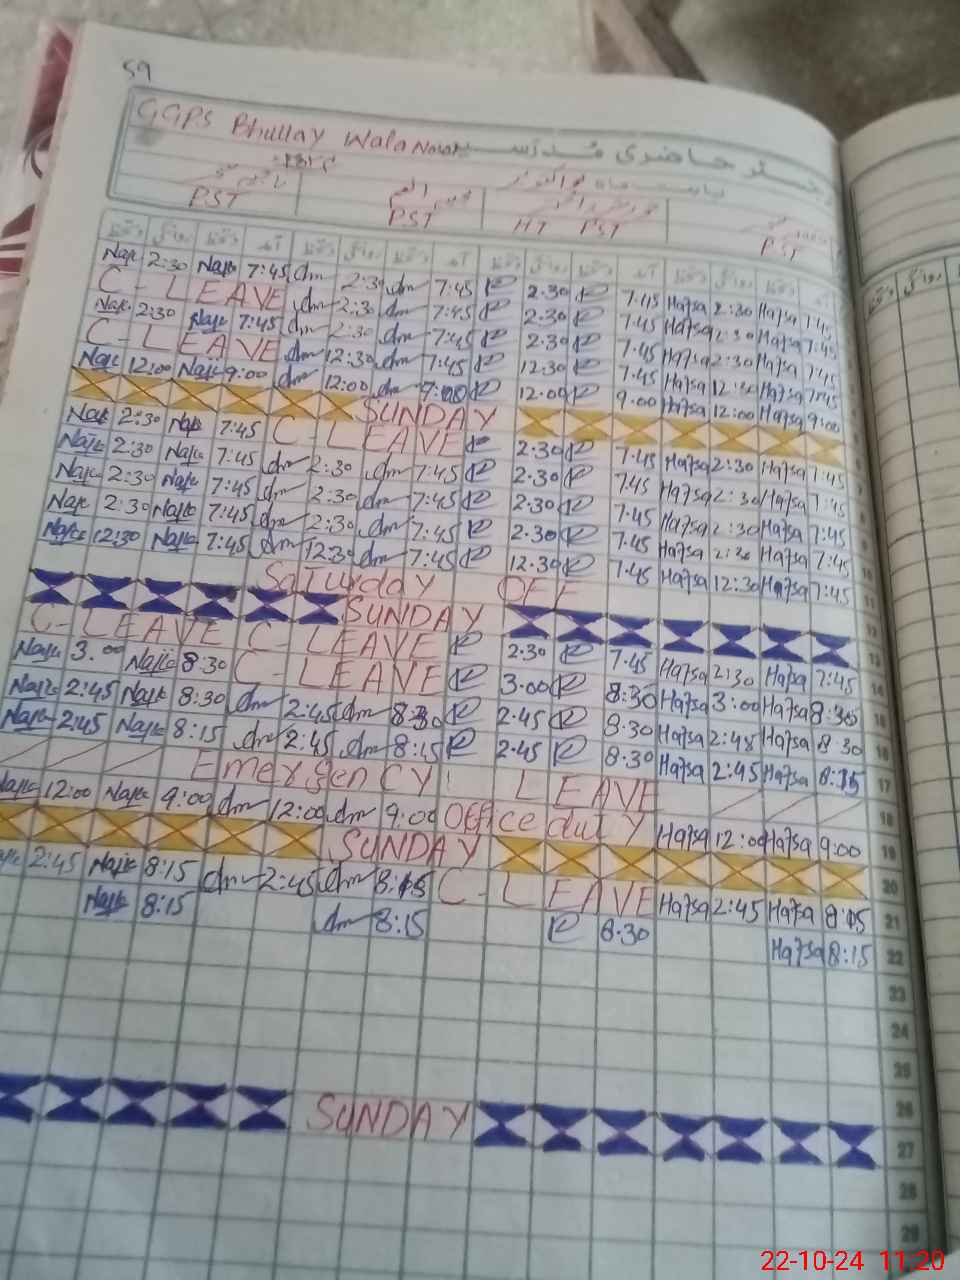 59
GGPS Bhullay Wala رجسٹر حاضری مدرسین
بابت ماہ
PST PST HT PST PST
Najc 2:30 Najc 7:45 dm 2:30 dm 7:45 R 2.30 R 7.45 Hafsa 2:30 Hafsa 7:45
C - LEAVE dm 2:30 dm 7:45 R 2.30 R 7.45 Hafsa 2:30 Hafsa 7:45
Najc 2:30 Najc 7:45 dm 2:30 dm 7:45 R 2.30 R 7.45 Hafsa 2:30 Hafsa 7:45
C - LEAVE dm 12:30 dm 7:45 R 12.30 R 7.45 Hafsa 12:30 Hafsa 7:45
Najc 12:00 Najc 9:00 dm 12:00 dm R 12.00 R 9.00 Hafsa 12:00 Hafsa 9:00
SUNDAY
Najc 2:30 Najc 7:45 C - LEAVE R 2.30 R 7.45 Hafsa 2:30 Hafsa 7:45
Najc 2:30 Najc 7:45 dm 2:30 dm 7:45 R 2.30 R 7.45 Hafsa 2:30 Hafsa 7:45
Najc 2:30 Najc 7:45 dm 2:30 dm 7:45 R 2.30 R 7.45 Hafsa 2:30 Hafsa 7:45
Najc 2:30 Najc 7:45 dm 2:30 dm 7:45 R 2.30 R 7.45 Hafsa 2:30 Hafsa 7:45
Najc 12:30 Najc 7:45 dm 12:30 dm 7:45 R 12.30 R 7.45 Hafsa 12:30 Hafsa 7:45 11
Saturday OFF 12
SUNDAY 13
C - LEAVE C - LEAVE R 2.30 R 7.45 Hafsa 2:30 Hafsa 7:45 14
Najc 3.00 Najc 8:30 C - LEAVE R 3.00 R 8:30 Hafsa 3:00 Hafsa 8:30 15
Najc 2:45 Najc 8:30 dm 2:45 dm 8:30 R 2.45 R 8.30 Hafsa 2:45 Hafsa 8:30 16
Najc 2:45 Najc 8:15 dm 2:45 dm 8:15 R 2.45 R 8.30 Hafsa 2:45 Hafsa 8:15 17
Emergency LEAVE 18
Najc 12:00 Najc 9:00 dm 12:00 dm 9:00 Office duty Hafsa 12:00 Hafsa 9:00 19
SUNDAY 20
Najc 2:45 Najc 8:15 dm 2:45 dm 8:15 C - LEAVE Hafsa 2:45 Hafsa 8:15 21
Najc 8:15 dm 8:15 R 8.30 Hafsa 8:15 22
23
24
25
26
SUNDAY 27
28
29
22-10-24 11:20